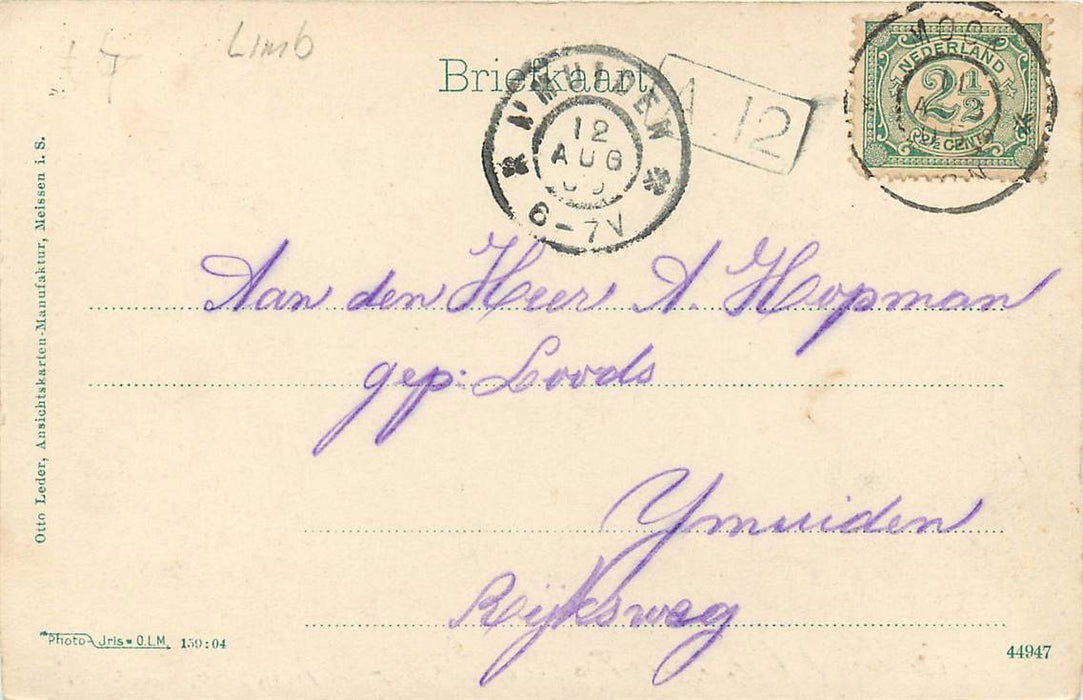 Limb
Briefkaart
IJMUIDEN
12
AUG
6-7V
A.12
MOOK
NEDERLAND
2½
2½ CENT
Aan den Heer A. Hopman
gep: Loods
Ymuiden
Rijksweg
Otto Leder, Ansichtskarten-Manufaktur, Meissen i. S.
Photo-Jris-O.L.M. 159:04
44947